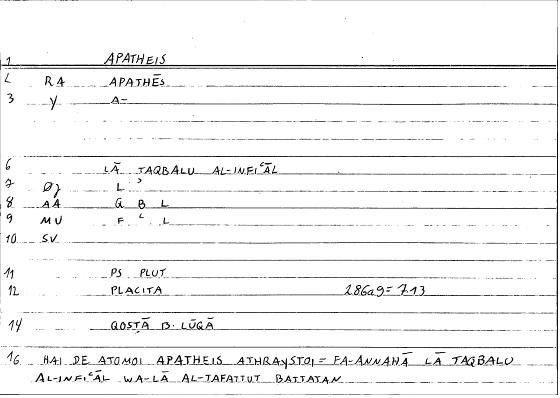 1 APATHEIS
2 RA APATHĒS
3 Y A-
6 LĀ TAQBALU AL-INFIʿĀL
7 Øj L ʾ
8 AA Q B L
9 MU F ʿ L
10 SV
11 PS PLUT
12 PLACITA 286a9=7.13
14 QOSṬĀ B. LŪQĀ
16 HAI DE ATOMOI APATHEIS ATHRAYSTOI = FA-ANNAHĀ LĀ TAQBALU
AL-INFIʿĀL WA-LĀ AL-TAFATTUT BATTATAN